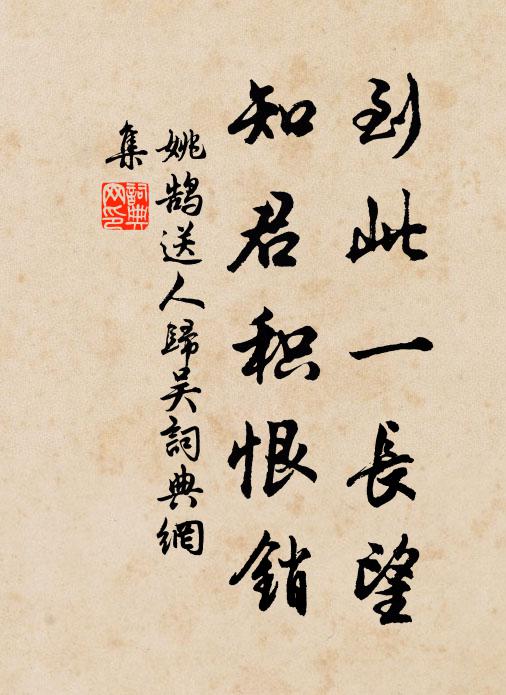 到此一長望
知君积恨銷
姚鹄送人歸吴詞典網
集
詞典
网印